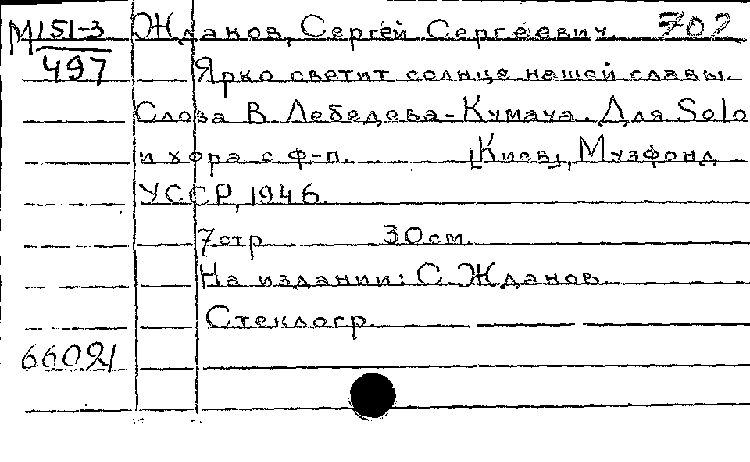 М 151-3 Жданов, Сергей Сергеевич 702
497 Ярко светит солнце нашей славы.
Слова В. Лебедева-Кумача. Для Solo
и хора с ф-п. [Киев], Музфонд
УССР, 1946.
7 стр 30 см.
На издании: С. Жданов
Стеклогр.
66021